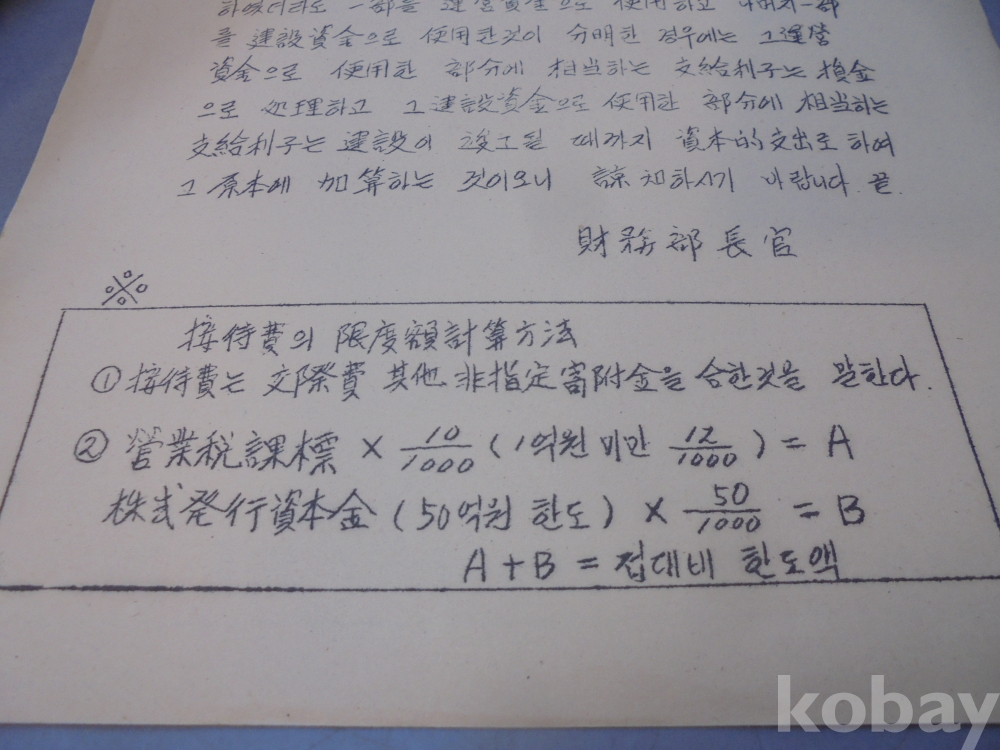 하였더라도 一部를 運營資金으로 使用하고 나머지 一部
를 建設資金으로 使用한것이 分明한 경우에는 그 運營
資金으로 使用한 部分에 相当하는 支給利子는 損金
으로 処理하고 그 建設資金으로 使用한 部分에 相当하는
支給利子는 建設이 竣工될 때까지 資本的支出로 하여
그 原本에 加算하는 것이오니 諒知하시기 바랍니다. 끝.
財務部長官
※
接待費의 限度額計算方法
① 接待費는 交際費 其他 非指定寄附金을 合한것을 말한다.
② 営業税課標 × 10/1000 (1억원 미만 12/1000) = A
株式発行資本金 (50억원 한도) × 50/1000 = B
A + B = 접대비 한도액
kobay